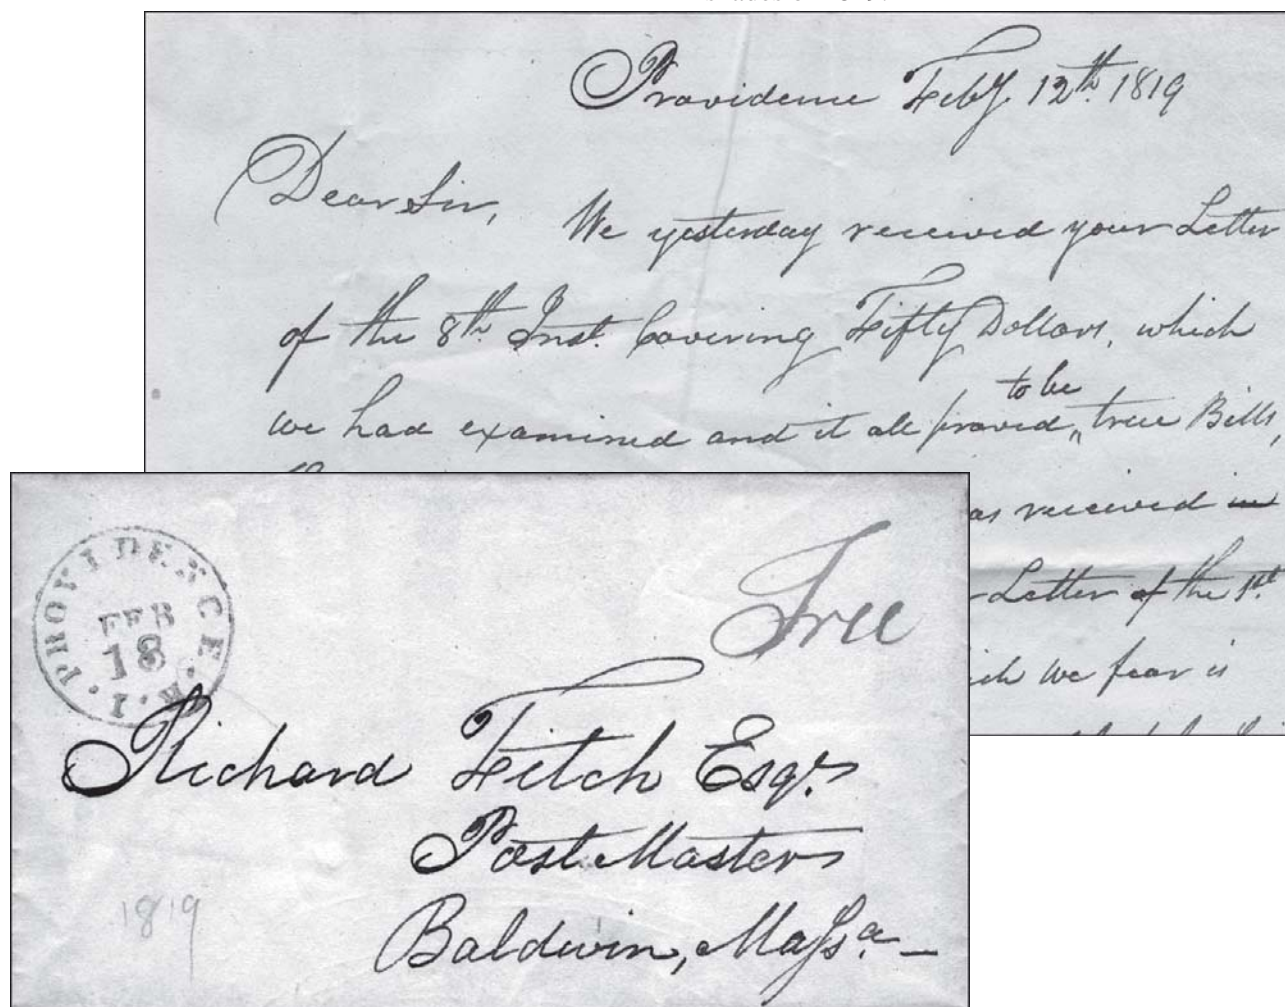 Providence Feby. 12th. 1819
Dear Sir, We yesterday received your Letter
of the 8th. Inst. Covering Fifty Dollars, which
to be
we had examined and it all proved " true Bills,
as received in
Letter of the 1st.
ich we fear is
PROVIDENCE. R. I.
FEB
18
Free
Richard Fitch Esqr.
Post Master
Baldwin, Massa. —
1819